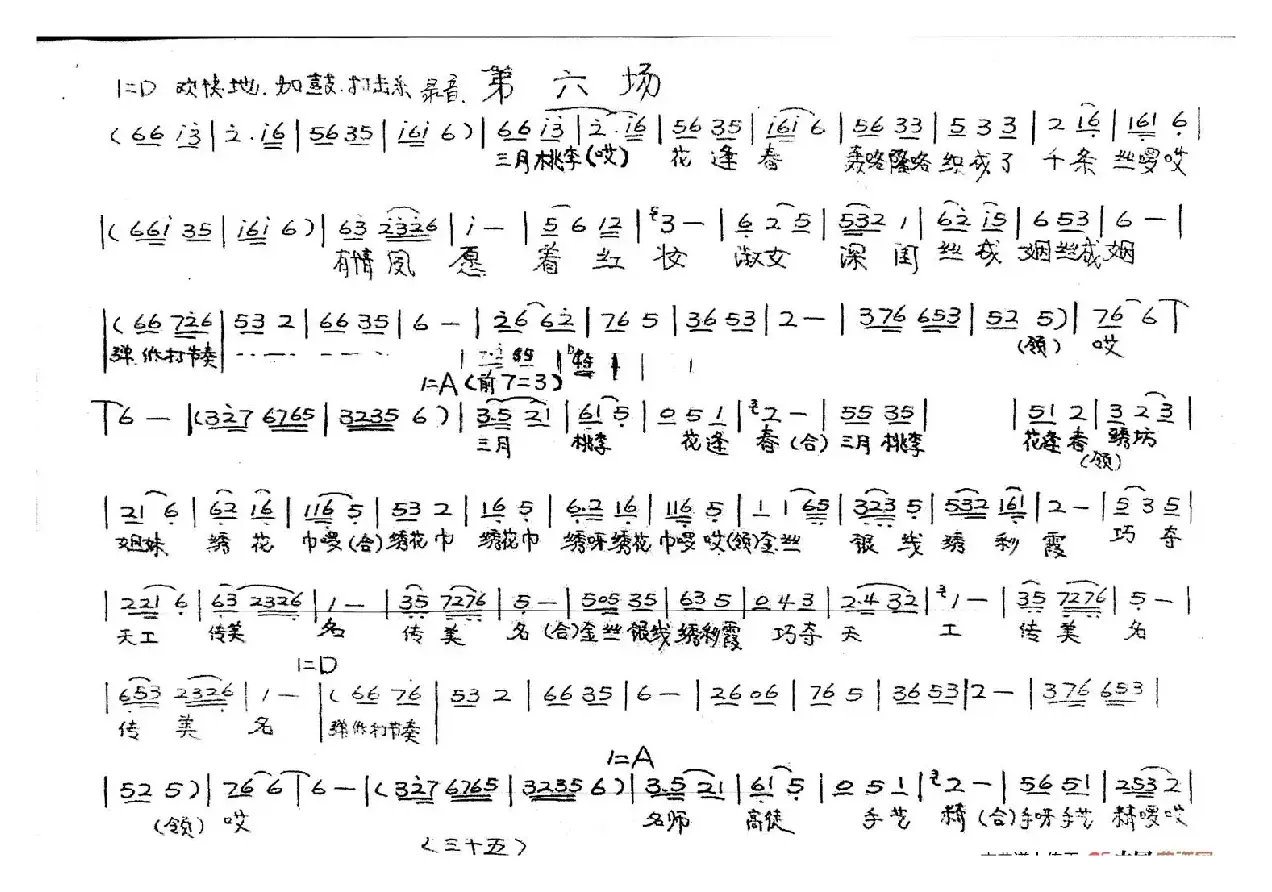 1=D 欢快地.加鼓.打击乐 录音 第六场
(66 i3|2.i6|56 35|i6i 6)|66 i3|2.i6|56 35|i6i 6|56 33|5 3 3|2 i6|161 6|
三月桃李(哎) 花逢春 轰咯隆咯织成了 千条 丝嘤哎
|(66i 35|i6i 6)|63 2326|i-|5 6 12|3-|6 2 5|532 1|62 i5|6 53|6-|
有情凤愿着红妆 淑女深闺丝成姻丝成姻
|(66 726|53 2|66 35|6-|26 62|76 5|36 53|2-|376 653|52 5)|76 6
弹低打节奏 (领) 哎
1=A(前7=3)
6-|(327 6765|3235 6)|3.5 21|61 5|0 5 1|2-|55 35| |51 2|3 2 3|
三月 桃李 花逢 春(合)三月桃李 花逢春 绣坊
(领)
|21 6|62 16|116 5|53 2|16 5|6.2 16|116 5|1 1 65|323 5|532 161|2-|5 3 5|
姐妹 绣花 巾嘤(合)绣花巾 绣花巾 绣呀绣花巾嘤哎(领)金丝 银线绣彩霞 巧夺
|221 6|63 2326|1-|35 7276|5-|505 35|635|043|2.4 32|1-|35 7276|5-|
天工 传美 名 传美 名(合)金丝银线绣彩霞 巧夺天 工 传美 名
1=D
|653 2326|1-|(66 76|53 2|66 35|6-|26 06|76 5|36 53|2-|376 653|
传美名 弹低打节奏
1=A
|52 5)|76 6 6-|(327 6765|3235 6)|3.5 21|61 5|0 5 1|2-|56 51|253 2|
(领) 哎 名师 高徒 手艺 精(合)手呀手艺 精嘤哎
<三十五>